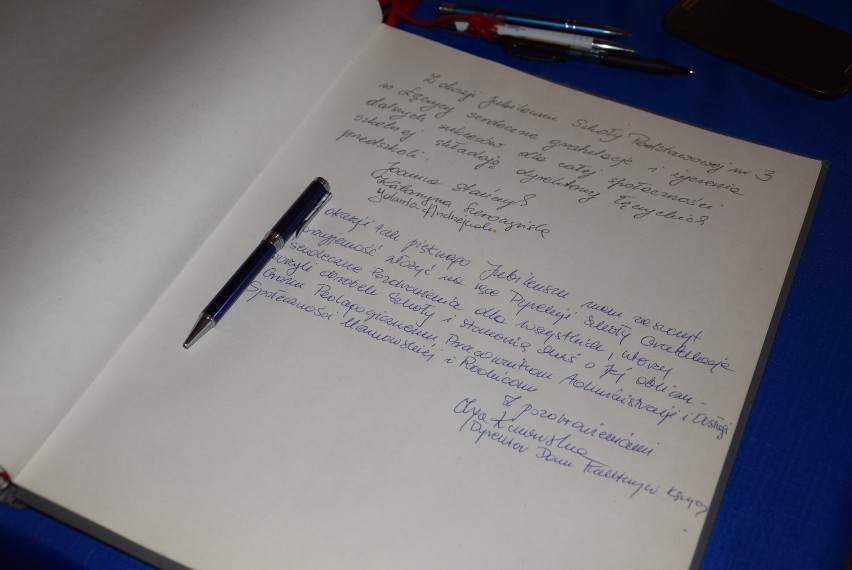 Z okazji Jubileuszu Szkoły Podstawowej nr 3
w Łęczycy serdeczne gratulacje i życzenia
dalszych sukcesów dla całej społeczności
szkolnej składają dyrektorzy łęczyckich
przedszkoli:
Joanna
Katarzyna
Jolanta Andrzejczak
okazji tak pięknego Jubileuszu mam zaszczyt
przyjemność złożyć na ręce Dyrekcji Szkoły Gratulacje
serdeczne Pozdrowienia dla wszystkich, którzy
tworzyli dorobek Szkoły i stanowią dziś o Jej obliczu -
Gronu Pedagogicznemu, Pracownikom Administracji i Obsługi
Społeczności Uczniowskiej i Rodzicom
Z pozdrowieniami
Dyrektor Domu Kultury w Łęczycy